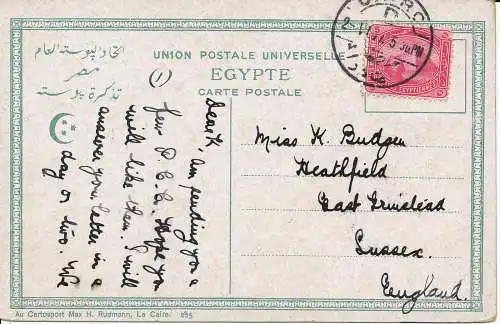 UNION POSTALE UNIVERSELLE
EGYPTE
CARTE POSTALE
اتحاد البوسته العام
مصر
تذكرة بوسته
(1)
Dear K. Am sending you a
few P.C.s. Hope you
will like them. I will
answer your letter in a
day or two. We
CAIRO
D
PM
EGYPTIENNES
Miss K. Budgen
Heathfield
East Grinstead
Sussex.
England.
Au Cartosport Max H. Rudmann, Le Caire.